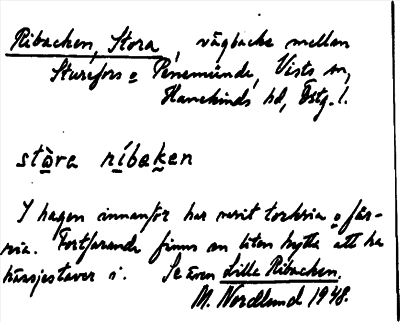 Ribacken, Stora, vägbacke mellan
Sturefors o Penemünde, Vists sn,
Hanekinds hd, Östg. l.
stòra ríbaken
I hagen innanför har varit torkria o får-
ria. Fortfarande finns en liten hytte att ha
hässjestaver i. Se även Lilla Ribacken.
M. Nordlund 1948.